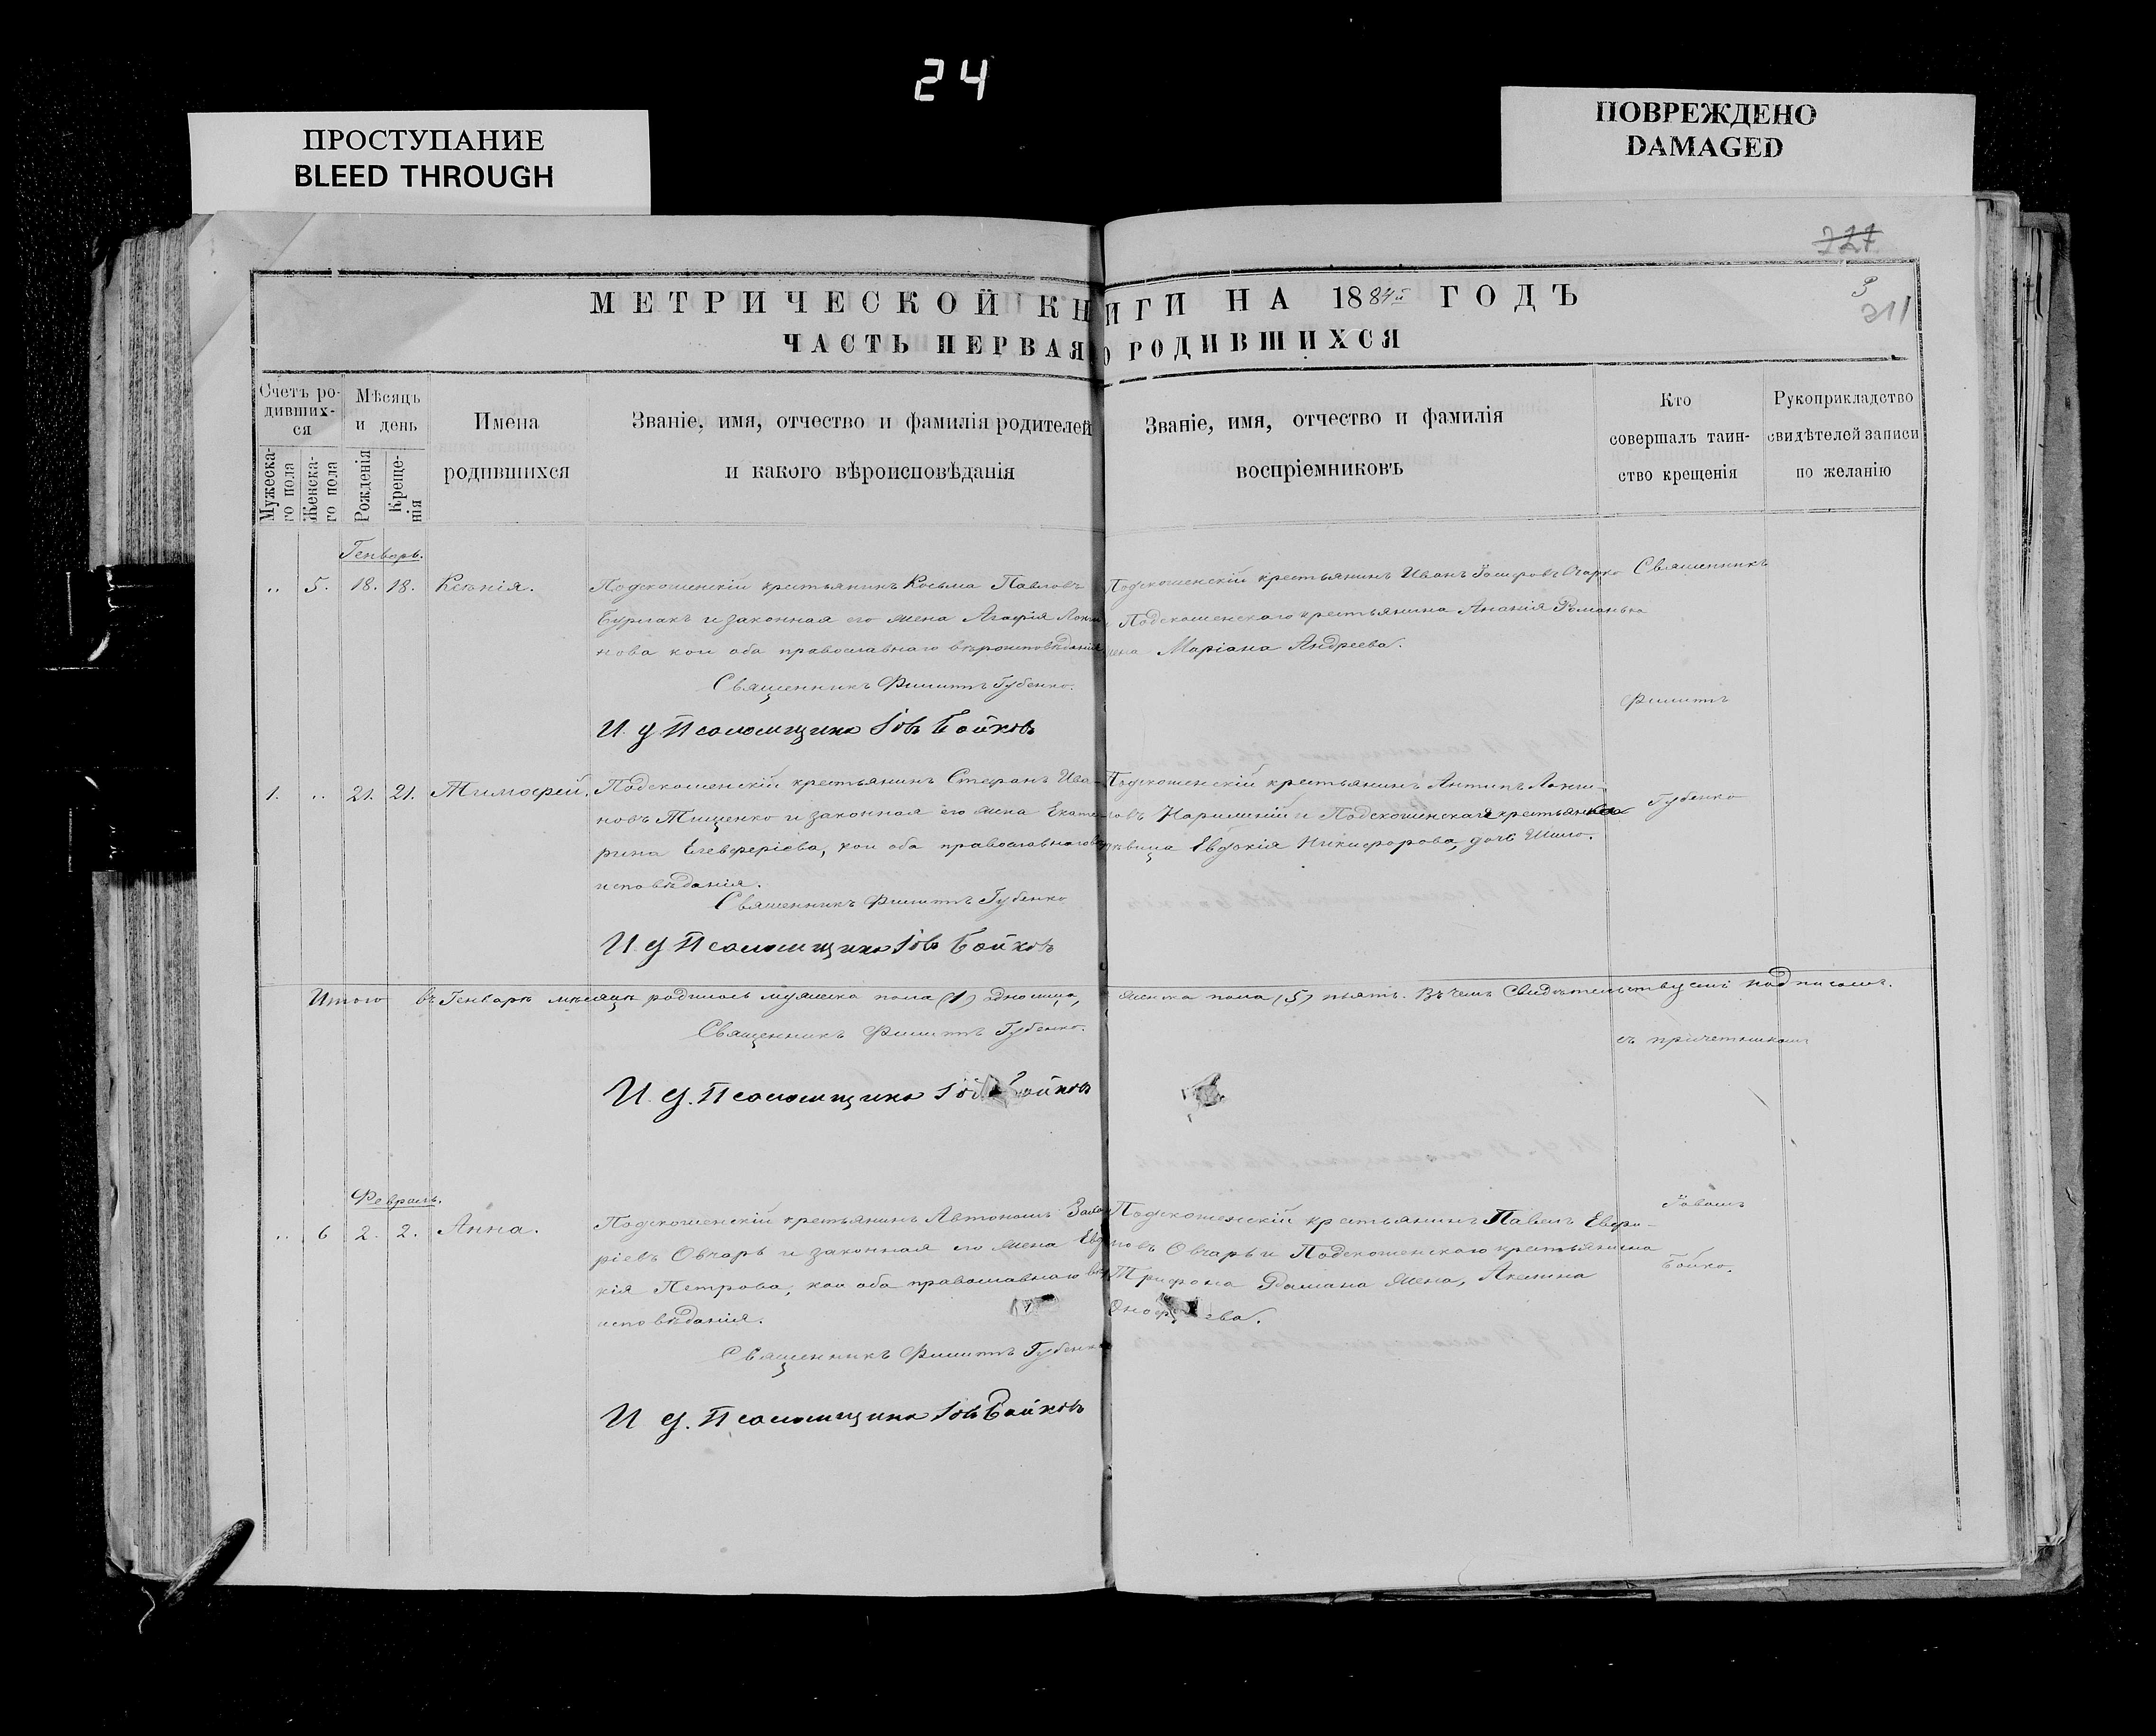 24
ПРОСТУПАНИЕ
BLEED THROUGH
ПОВРЕЖДЕНО
DAMAGED
727
3
211
МЕТРИЧЕСКОЙ КНИГИ НА 1884й ГОДЪ
ЧАСТЬ ПЕРВАЯ О РОДИВШИХСЯ
Счетъ ро-
дивших-
ся
Мужеска-
го пола
Женска-
го пола
Мѣсяцъ
и день
Рожденія
Креще-
нія
Имена
родившихся
Званіе, имя, отчество и фамилія родителей
и какого вѣроисповѣданія
Званіе, имя, отчество и фамилія
воспріемниковъ
Кто
совершалъ таин-
ство крещенія
Рукоприкладство
свидѣтелей записи
по желанію
Генварь.
„ 5. 18. 18. Ксенія.
Подскошенскій крестьянинъ Косьма Павловъ
Бурлакъ и законная его жена Агафія
нова кои оба православнаго вѣроисповѣданія.
Священникъ Филиппъ Губенко.
И. д. Псаломщика Іовъ Бойковъ
Подскошенскій крестьянинъ Иванъ
Подскошенскаго крестьянина Ананія Романька
жена Маріана Андреева.
Священникъ
Филиппъ
Губенко
1. „ 21. 21. Тимофей.
Подскошенскій крестьянинъ Стефанъ Ива-
новъ Тищенко и законная его жена Екате-
рина Елевферіева, кои оба православнаго
исповѣданія.
Священникъ Филиппъ Губенко
И. д. Псаломщика Іовъ Бойковъ
Подскошенскій крестьянинъ Антипъ
и Подскошенская
дѣвица Евдокія Никифорова, дочь Шило.
Итого въ Генварѣ мѣсяцѣ родилось мужеска пола (1) одно лицо, женска пола (5) пять. Въ чемъ свидѣтельствуемъ подписомъ.
Священникъ Филиппъ Губенко.
И. д. Псаломщика Іовъ Бойковъ
съ причетникомъ
Іовомъ
Бойко.
Февраль.
„ 6 2. 2. Анна.
Подскошенскій крестьянинъ Автономъ
ріевъ Овчаръ и законная его жена Евдо
кія Петрова, кои оба православнаго
исповѣданія.
Священникъ Филиппъ Губенко
И. д. Псаломщика Іовъ Бойковъ
Подскошенскій крестьянинъ Павелъ
новъ Овчаръ и Подскошенскаго крестьянина
Трифона жена, Акилина